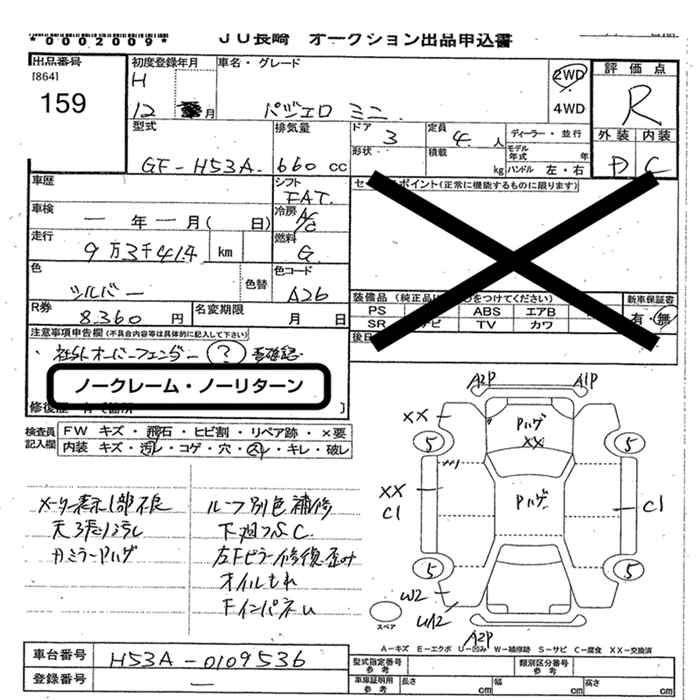 *0002009*
JU長崎 オークション出品申込書
出品番号
[864]
159
初度登録年月
H
12 月
車名・グレード
パジェロ ミニ
2WD
4WD
評価点
R
外装 内装
D C
型式
GF-H53A
排気量
660 cc
ドア
3
定員
4 人
ディーラー・並行
形状
積載
kg
モデル年式 年
ハンドル 左・右
車歴
シフト
FAT
セ ポイント(正常に機能するものに限ります)
車検
一 年 一 月( 日)
冷房
A/C
走行
9万3千414 km
燃料
G
色
シルバー
色替
色コード
A26
装備品(純正品は ○をつけてください)
新車保証書
PS ABS エアB
有・無
SR ナビ TV カワ
R券
8,360 円
名変期限
月 日
後日
注意事項申告欄(不具合内容等は具体的に記入して下さい)
社外オーバーフェンダー ? 未確認
ノークレーム・ノーリターン
修復歴 有で箇所
検査員記入欄
FW キズ・飛石・ヒビ割・リペア跡・×要
内装 キズ・汚レ・コゲ・穴・スレ・キレ・破レ
メーター表示1部不良
ルーフ別色補修
天張り汚レ
下廻りS,C
カミラーPハゲ
左Fピラー修復歪み
オイルもれ
Fインパネu
A2P A1P
XX
Pハゲ
XX
5 5
XX
C1
Pハゲ
C1
5 5
W2
UA2
スペア
A2P
A-キズ E-エクボ U-凹み W-補修跡 S-サビ C-腐食 XX-交換済
車台番号
H53A-0109536
登録番号
—
型式指定番号 参考
類別区分番号 参考
車庫証明用 参考
長さ cm
幅 cm
高さ cm